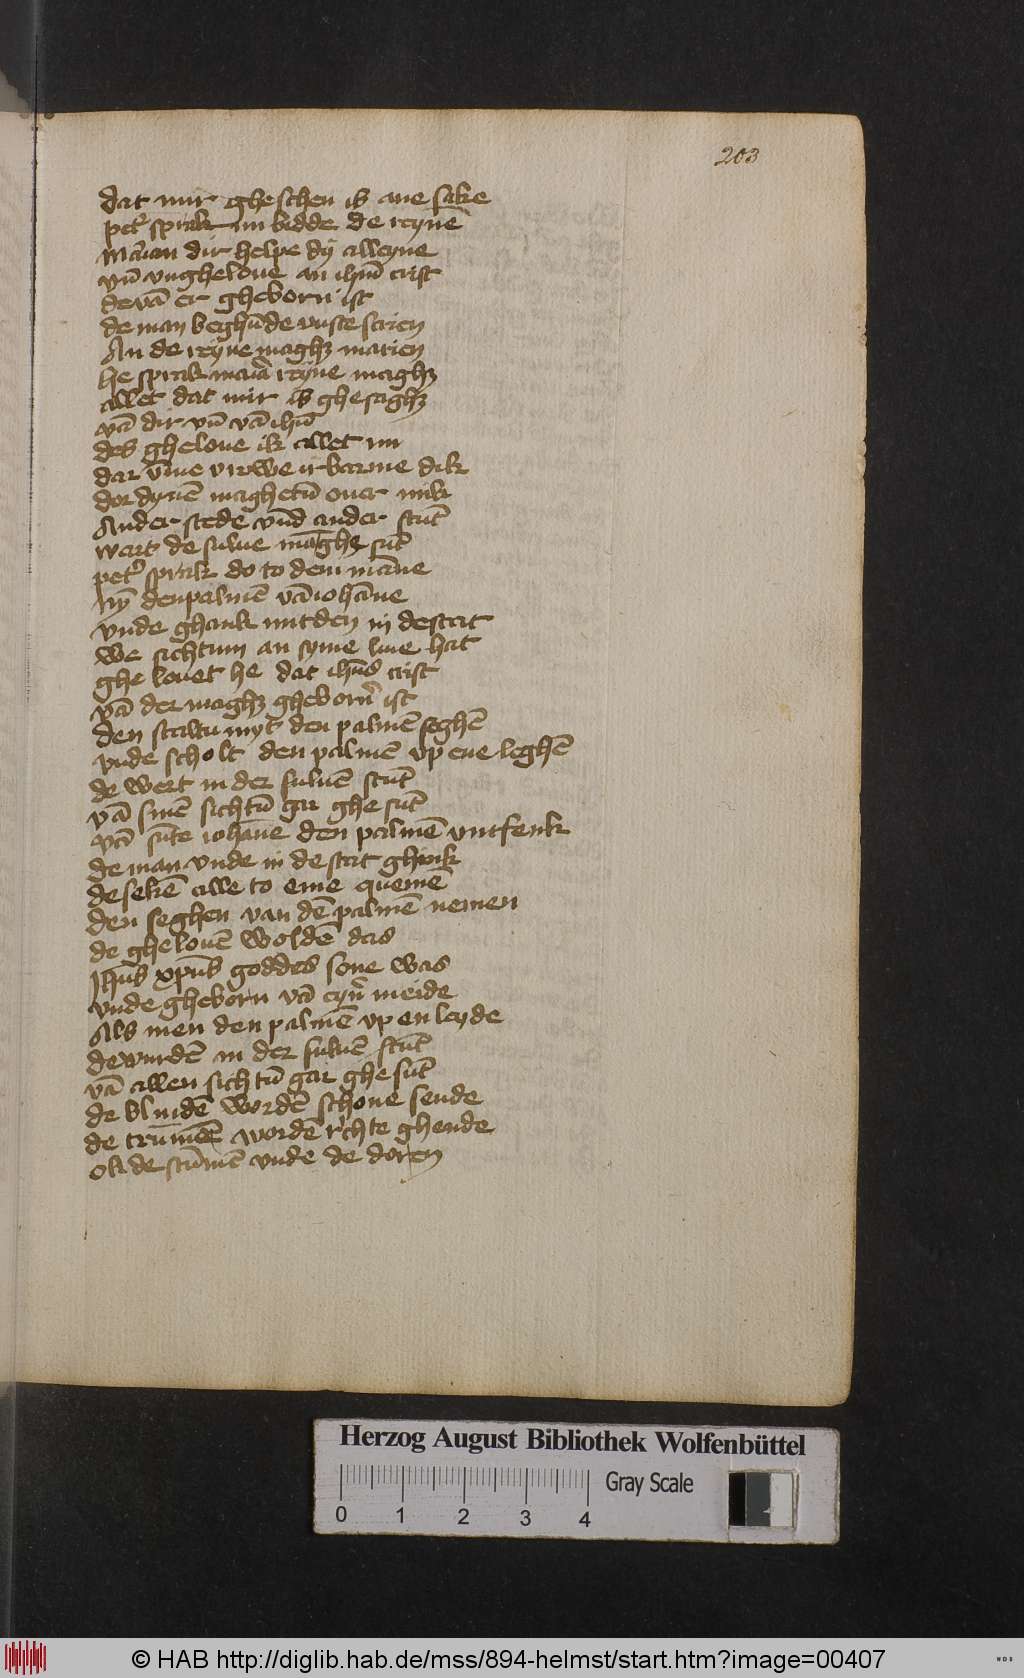 203
dat mir gheschen is ane sake
pet' sprak nu bidde de reynē
Marian dir helpe dy alleyne
vn̄ vnghelove an ihm̄ crist
de vā er gheborn ist
de man beghūde vaste scrien
An de reyne maghꝫ marien
he sprak maria reyne maghꝫ
allet dat mir is ghesaghꝫ
vā dir vn̄ vā ihū
des ghelove ik allet nu
dar vm̄e vrowe irbarme dik
dor dynē maghetū over mik
An der stede vnd an der stūt
wart de sulve māghe sūt
pet' sprak do to dem māne
Nȳ den palmē vā iohāne
vnde ghank mit den in de stat
we sichtum an syme live hat
ghelovet he dat ihūs crist
vā der maghꝫ gheborn ist
den scaltu myt den palmē seghē
vnde scholt den palmē vp ene leghē
de wert in der sulvē stūt
vā sinē sichtū gar ghesūt
vā sūte iohāne den palmē vntfenk
de man vnde in de stat ghink
de sekē alle to eme quemē
den seghen van dē palmē nemen
de ghelovē woldē das
Jhūs xpūs goddes sone was
vnde gheborn vā eyn' meide
Als men den palmē vp en leyde
de wurdē in der sulvē stūt
vā allen sichtū gar ghesūt
de blindē wordē schone sende
de trummē wordē richte ghende
ok de stūmē vnde de doren
Herzog August Bibliothek Wolfenbüttel
Gray Scale
0 1 2 3 4
© HAB http://diglib.hab.de/mss/894-helmst/start.htm?image=00407